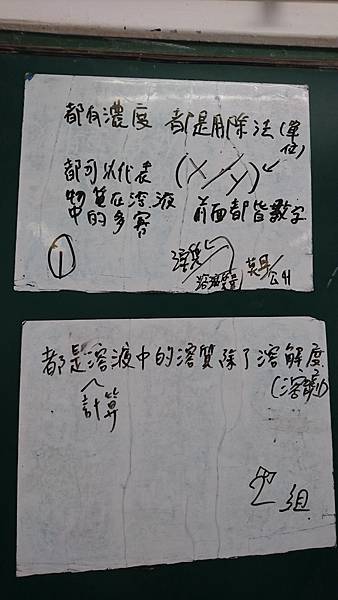 都有濃度 都是用除法(單位)
都可以代表 (X/Y)
物質在溶液 前面都皆數字
中的多寡
① 溶質/溶液 莫耳/公升
都是溶液中的溶質除了溶解度
計算 (溶劑)
組